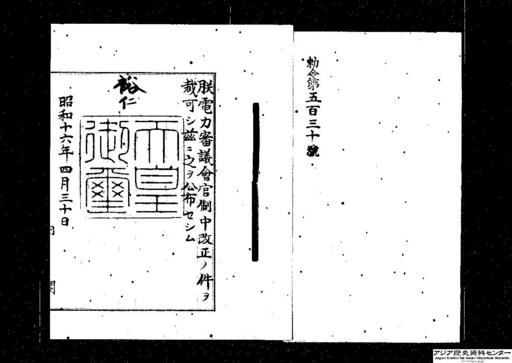 勅令第五百三十號
朕電力審議會官制中改正ノ件ヲ
裁可シ茲ニ之ヲ公布セシム
裕仁
天皇
御璽
昭和十六年四月三十日
内閣
アジア歴史資料センター
Japan Center for Asian Historical Records